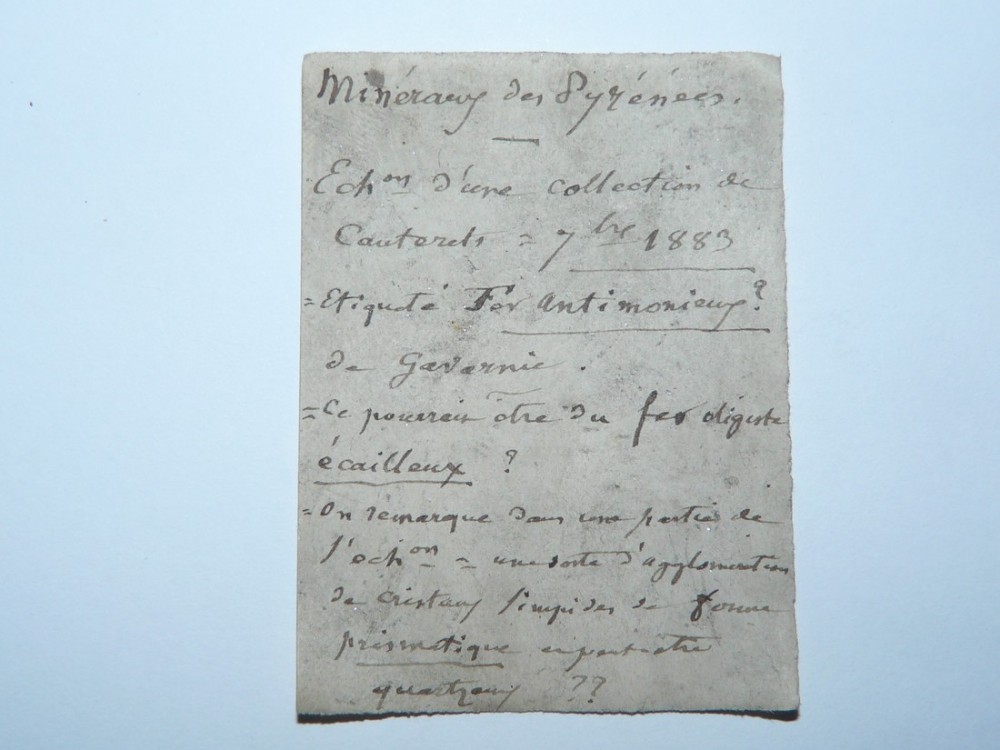 Minéraux des Pyrénées.
Ech^on d'une collection de
Cauterets = 7^bre 1883
= Etiqueté Fer Antimonieux?
de Gavarnie.
= Ce pourrait être du fer oligiste
écailleux ?
= On remarque dans une partie de
l'éch^on = une sorte d'agglomération
de cristaux limpides de forme
prismatique peut-être
quartzeux ??